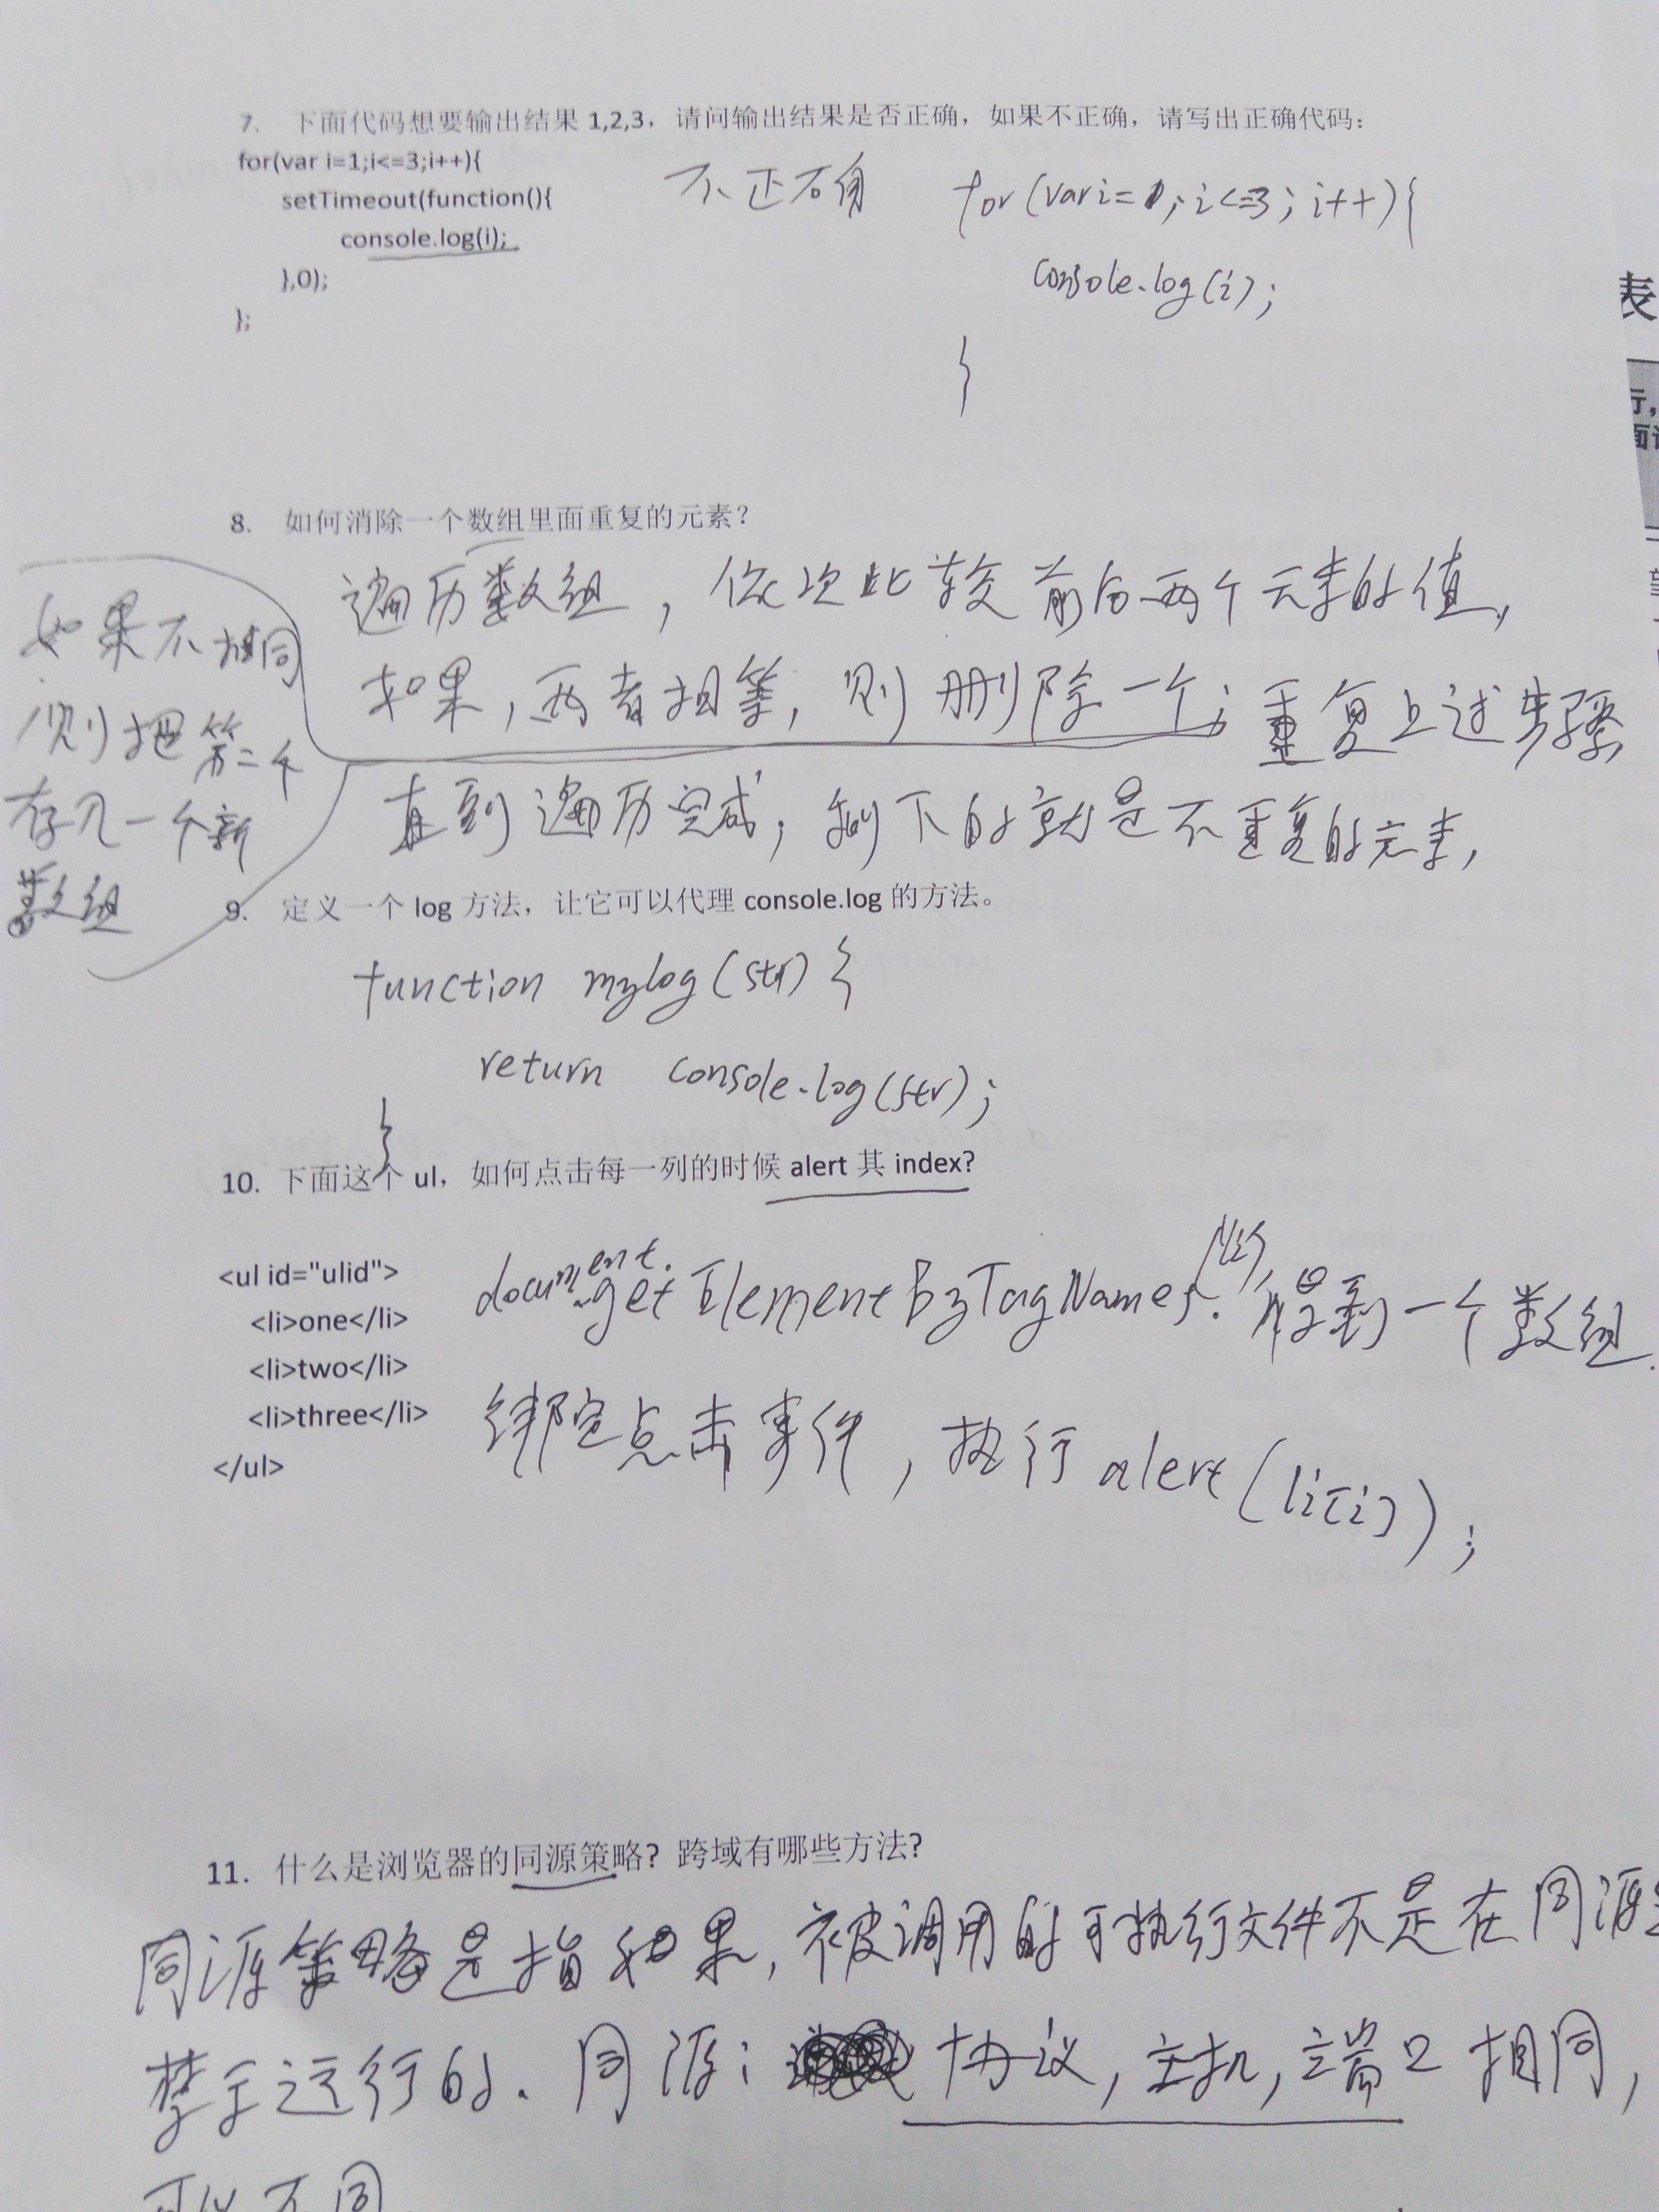 7. 下面代码想要输出结果 1,2,3，请问输出结果是否正确，如果不正确，请写出正确代码：
for(var i=1;i<=3;i++){
setTimeout(function(){
console.log(i);
},0);
};
不正确
for(var i=1;i<=3;i++){
console.log(i);
}
8. 如何消除一个数组里面重复的元素？
遍历数组，依次比较前后两个元素的值，
如果，两者相等，则删除一个；重复上述步骤，
直到遍历完成，剩下的就是不重复的元素，
如果不相同
则把第二个
存入一个新
数组
9. 定义一个 log 方法，让它可以代理 console.log 的方法。
function mylog(str){
return console.log(str);
}
10. 下面这个 ul，如何点击每一列的时候 alert 其 index?
<ul id="ulid">
<li>one</li>
<li>two</li>
<li>three</li>
</ul>
document.getElementByTagNames('li'), 得到一个数组.
绑定点击事件，执行 alert(li[i]);
11. 什么是浏览器的同源策略? 跨域有哪些方法?
同源策略是指如果，被调用的可执行文件不是在同源
禁于运行的. 同源: 协议，主机，端口相同，
可以不同.
表
行，